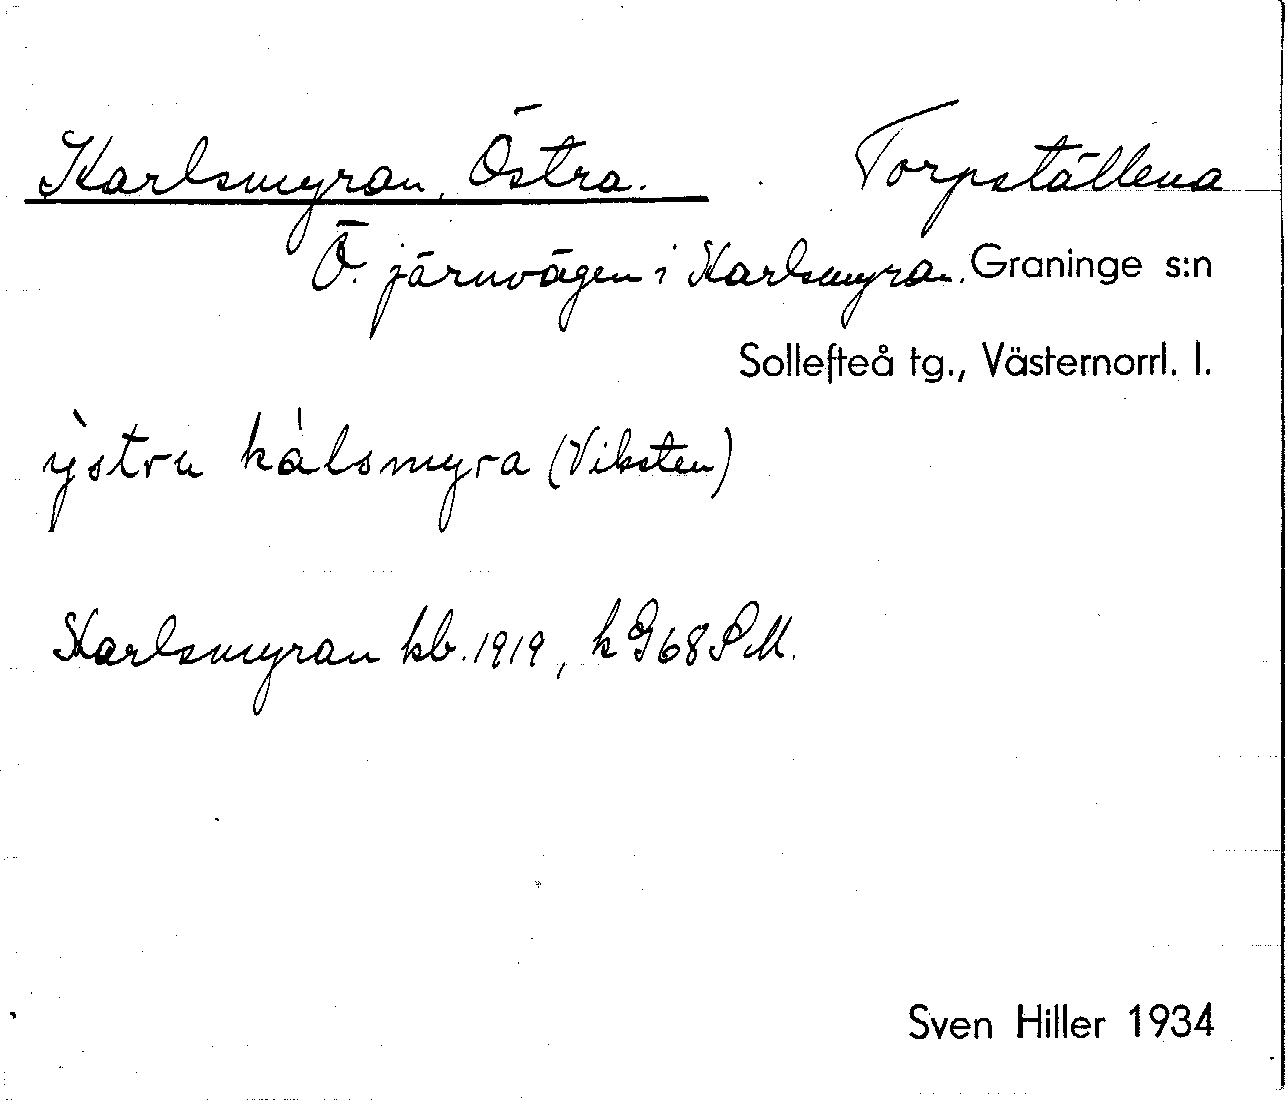 Karlsmyran, Östra. Torpställena
Ö. järnvägen i Karlsmyran. Graninge s:n
Sollefteå tg., Västernorrl. l.
ỳstru kálsmyra (Viksten)
Karlsmyran kb. 1919, k G68SM.
Sven Hiller 1934